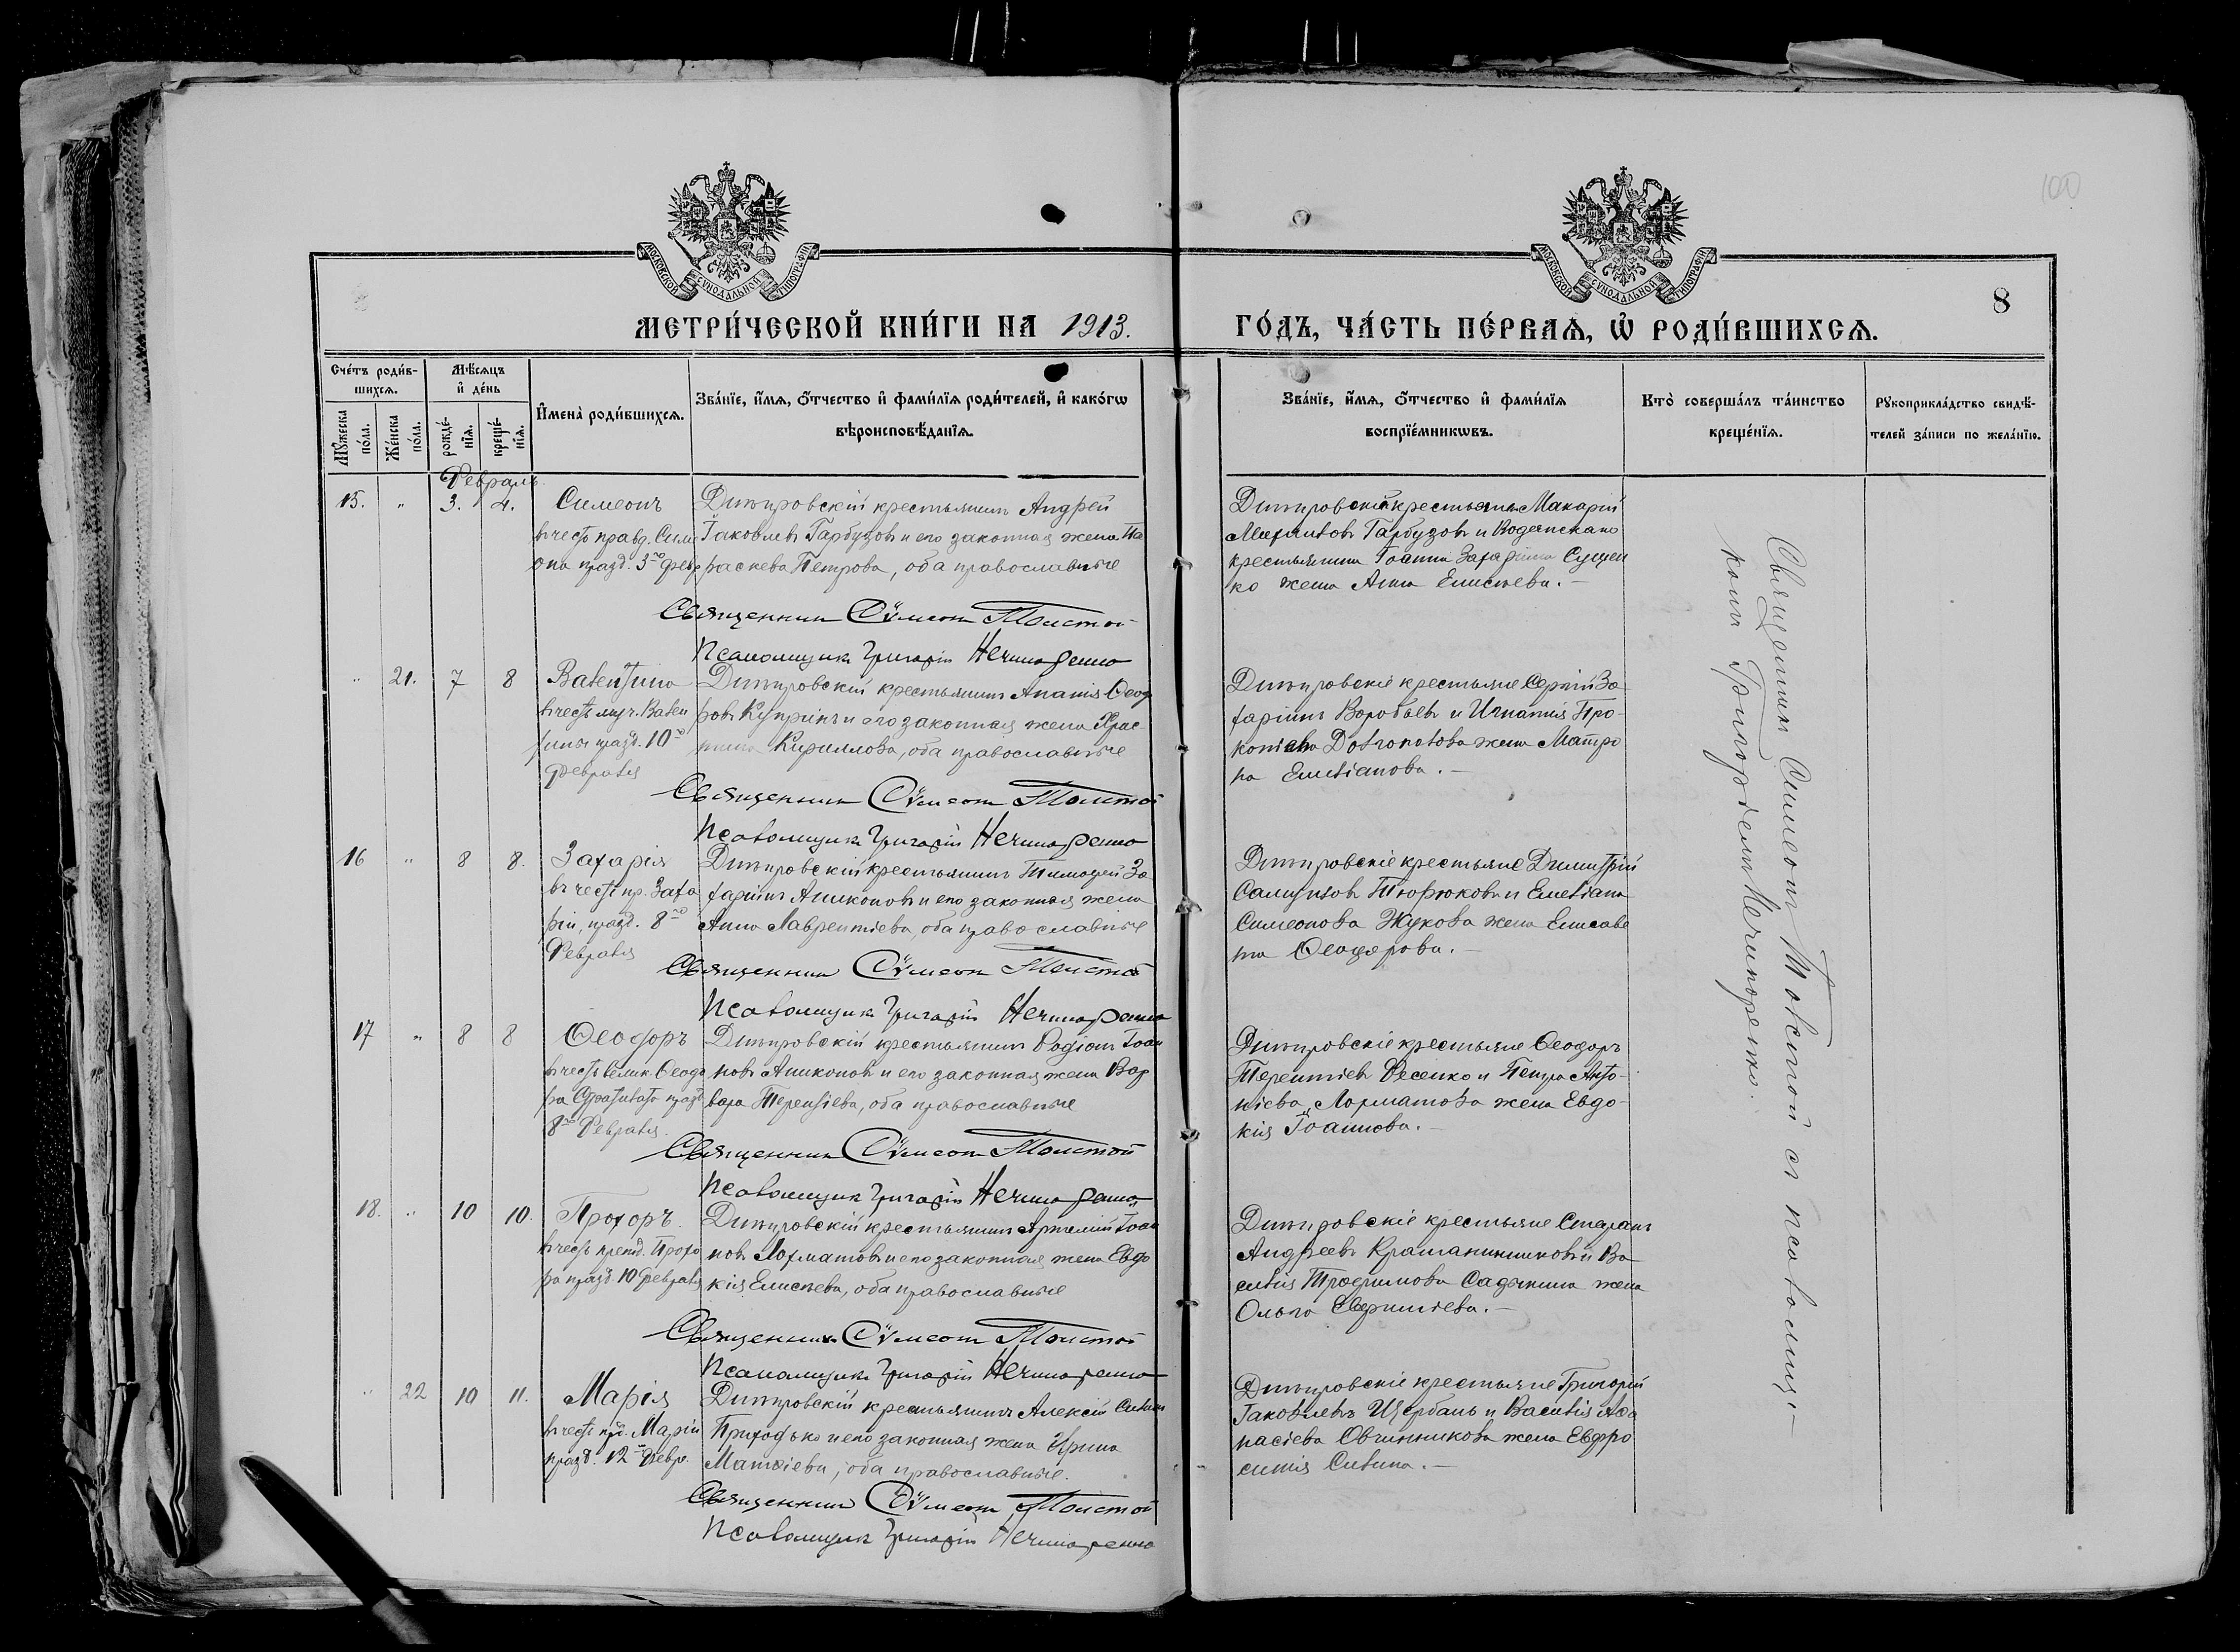 100
8
МОСКОВСКОЙ СѴНОДАЛЬНОЙ ТИПОГРАФІИ
МОСКОВСКОЙ СѴНОДАЛЬНОЙ ТИПОГРАФІИ
МЕТРИ́ЧЕСКОЙ КНИ́ГИ НА 1913. ГО́ДЪ, ЧА́СТЬ ПЕ́РВАѦ, Ѡ҆ РОДИ́ВШИХСѦ.
Сче́тъ роди́в-
шихсѧ.
Мꙋ́жеска по́ла.
Же́нска по́ла.
Мѣ́сѧцъ
и҆ де́нь
рожде́-
нїѧ.
креще́-
нїѧ.
И҆мена̀ роди́вшихсѧ.
Зва́нїе, и҆́мѧ, ѻ҆́тчество и҆ фами́лїѧ роди́телей, и҆ како́гѡ
вѣроисповѣ́данїѧ.
Зва́нїе, и҆́мѧ, ѻ҆́тчество и҆ фами́лїѧ
воспрїе́мникѡвъ.
Кто̀ соверша́лъ та́инство
креще́нїѧ.
Рꙋкоприкла́дство свидѣ́-
телей за́писи по жела́нїю.
Февраль
15. " 3. 4. Симеонъ
въ честь правд. Симе
она празд. 3го февр
Днѣпровскій крестьянинъ Андрей
Іаковлевъ Гарбузовъ и его законная жена Па
раскева Петрова, оба православные
Священникъ Сѵмеонъ Толстой
Псаломщикъ Григорій Нечипоренко
Днѣпровскій крестьянинъ Макарій
Гарбузовъ и Водянскаго
крестьянина Іоанна Захаріина Сущен
ко жена Анна Елисѣева. —
" 21. 7 8 Валентина
въ честь муч. Вален
тины празд. 10го
Февраля
Днѣпровскій крестьянинъ Ананія Ѳеодо
ровъ Купринъ и его законная жена Хрис-
тина Кириллова, оба православные
Священникъ Сѵмеонъ Толстой
Псаломщикъ Григорій Нечипоренко
Днѣпровскіе крестьяне Сергій За
харіинъ Воробьевъ и Игнатія Про-
копіева жена Матро
на Емеліанова. —
16 " 8 8. Захарія
въ честь пр. Заха
ріи, празд. 8го
Февраля
Днѣпровскій крестьянинъ Тимофей За
харіинъ Аниконовъ и его законная жена
Анна Лаврентіева, оба православные
Священникъ Сѵмеонъ Толстой
Псаломщикъ Григорій Нечипоренко
Днѣпровскіе крестьяне Димитрій
Самуиловъ Тюрюковъ и Емеліана
Симеонова Жукова жена Елисаве
та Ѳеодорова. —
17 " 8 8 Ѳеодоръ
въ честь велик. Ѳеодо
ра Стратилата празд
8го Февраля.
Днѣпровскій крестьянинъ Родіонъ Іоан
новъ Аниконовъ и его законная жена Вар
вара Терентіева, оба православные
Священникъ Сѵмеонъ Толстой
Псаломщикъ Григорій Нечипоренко
Днѣпровскіе крестьяне Ѳеодоръ
Терентіевъ Фесенко и Петра Анто-
ніева Лохматова жена Евдо-
кія Іоаннова. —
18. " 10 10. Прохоръ
въ честь препод. Прохо
ра празд. 10 Февраля
Днѣпровскій крестьянинъ Артемій Іоан
новъ Лохматовъ и его законная жена Евдо
кія Елисѣева, оба православные
Священникъ Сѵмеонъ Толстой
Псаломщикъ Григорій Нечипоренко
Днѣпровскіе крестьяне Стефанъ
Андреевъ и Ва
силія Трофимова Садчикова жена
Ольга Евфиміева. —
" 22 10 11. Марія
въ честь прд. Маріи
празд. 12го Февр.
Днѣпровскій крестьянинъ Алексій Силинъ
Приходько и его законная жена Ирина
Матѳіева, оба православные.
Священникъ Сѵмеонъ Толстой
Псаломщикъ Григорій Нечипоренко
Днѣпровскіе крестьяне Григорій
Іаковлевъ Щербань и Василія Аѳа
насіева Овчинникова жена Евфро
синія Силина. —
Священникъ Симеонъ Толстой съ псаломщи-
комъ Григоріемъ Нечипоренко.